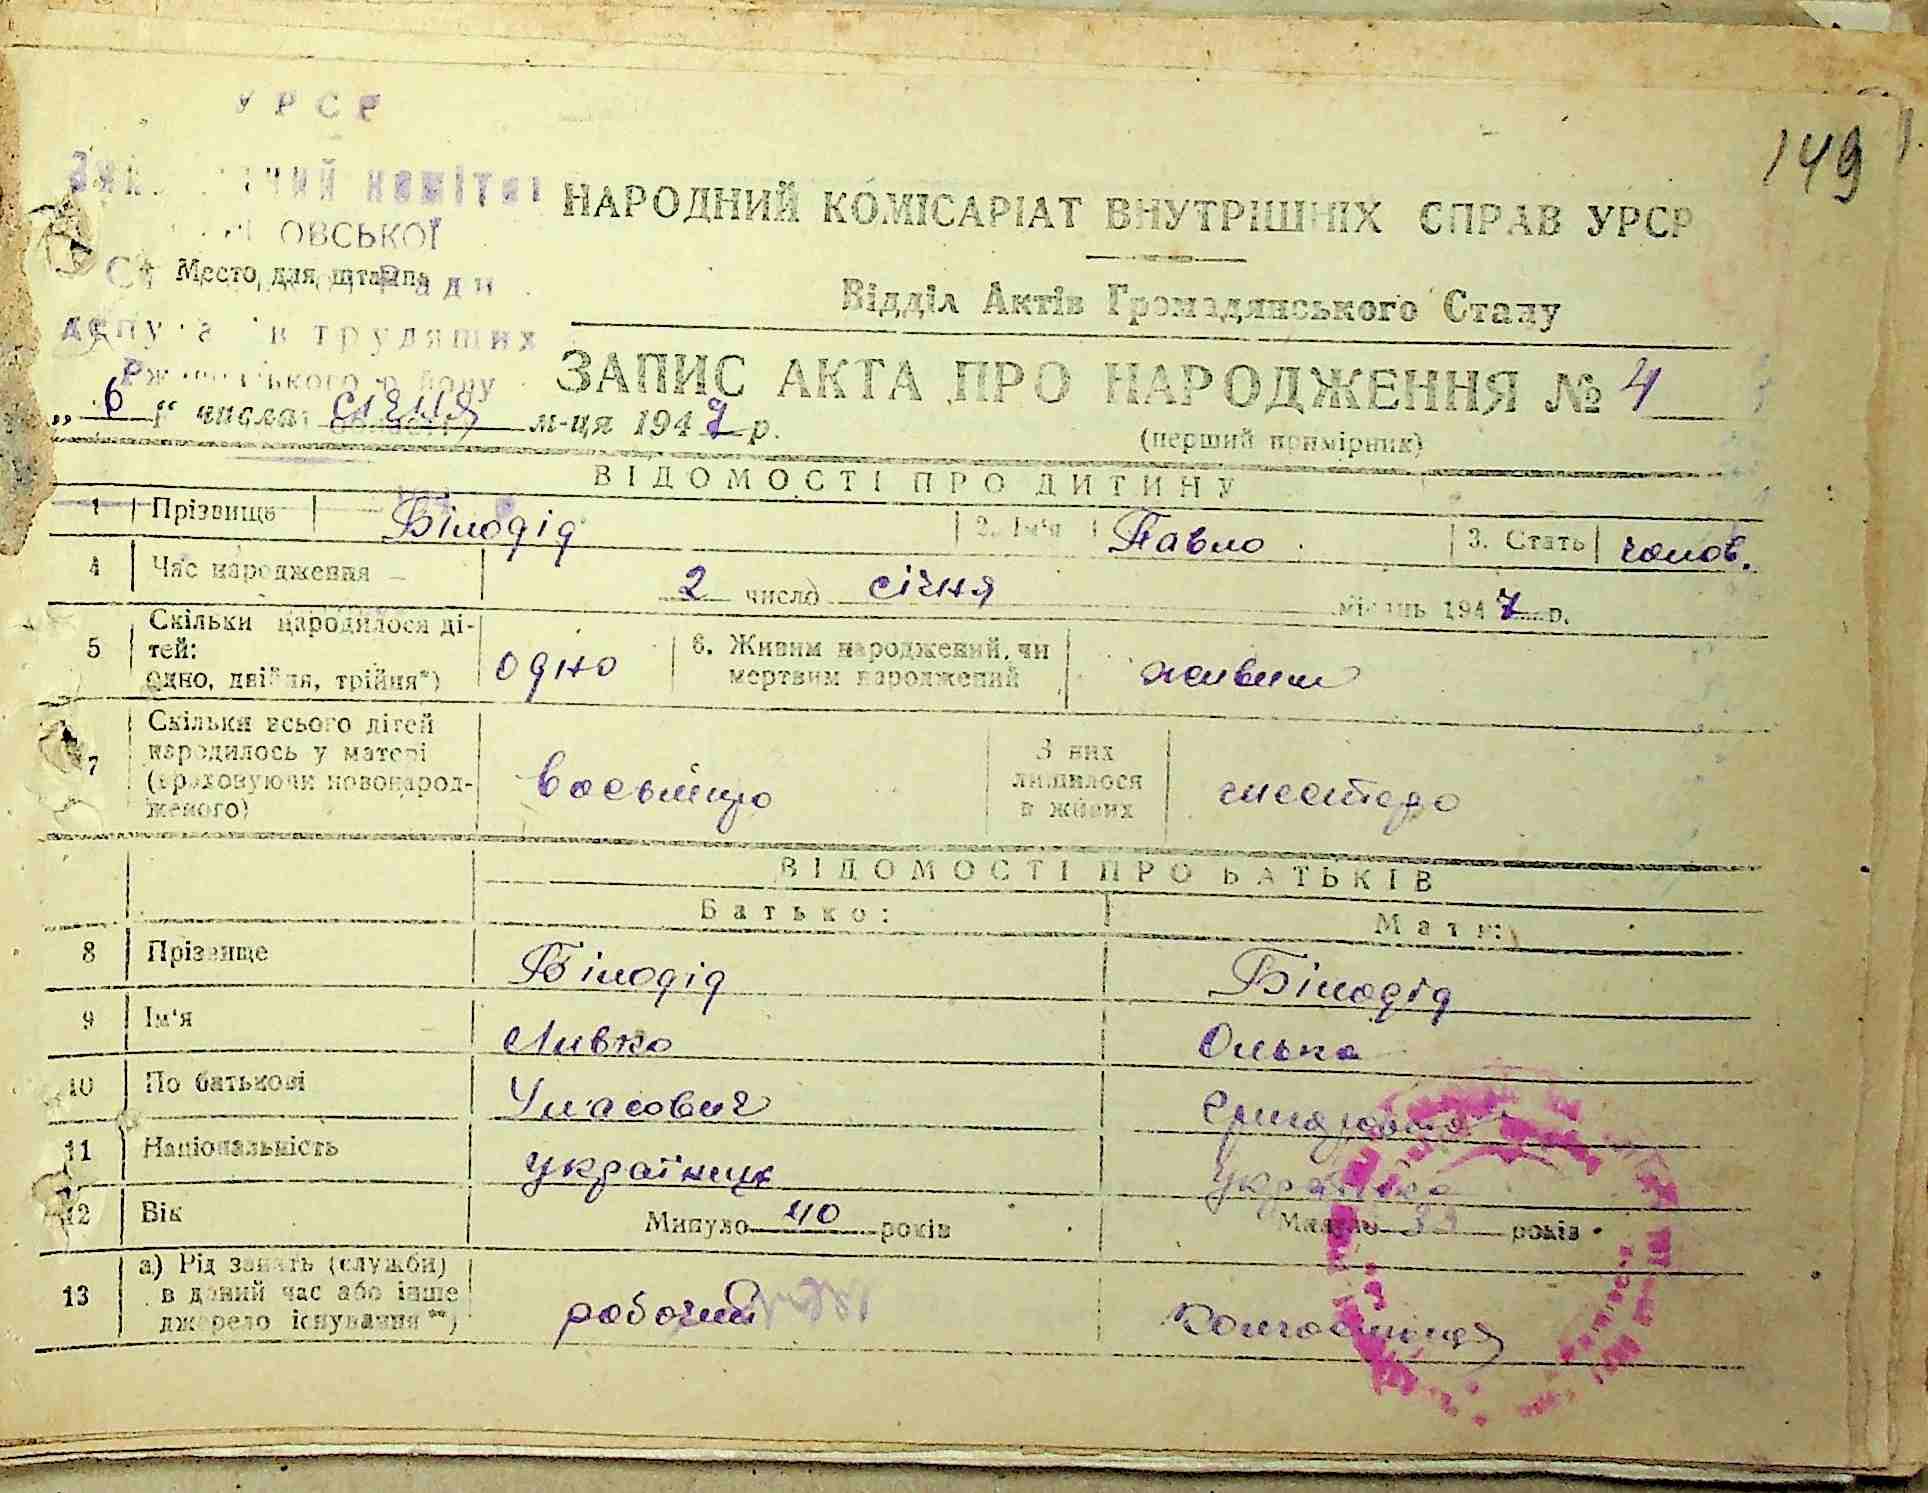 УРСР
149
НАРОДНИЙ КОМІСАРІАТ ВНУТРІШНІХ СПРАВ УРСР
ОВСЬКОЇ
Место для штампа
Ради
Відділ Актів Громадянського Стану
трудящих
ЗАПИС АКТА ПРО НАРОДЖЕННЯ № 4
„ 6 " числа січня м-ця 1947 р.
(перший примірник)
ВІДОМОСТІ ПРО ДИТИНУ
1 Прізвище Білодід 2. Ім'я Павло 3. Стать чолов.
4 Час народження – 2 число січня місяць 1947 р.
5 Скільки народилося ді-
тей:
одно, двійня, трійня*) одно 6. Живим народжений, чи
мертвим народжений живим
7 Скільки всього дітей
народилось у матері
(враховуючи новонарод-
женого) восьміро З них
лишилося
в живих шестеро
ВІДОМОСТІ ПРО БАТЬКІВ
Батько: Мати:
8 Прізвище Білодід Білодід
9 Ім'я Ливко Олька
10 По батькові Уласович
11 Національність українець українка
12 Вік Минуло 40 років Минуло років
13 а) Рід занять (служби)
в даний час або інше
джерело існування**) робочий колгоспниця